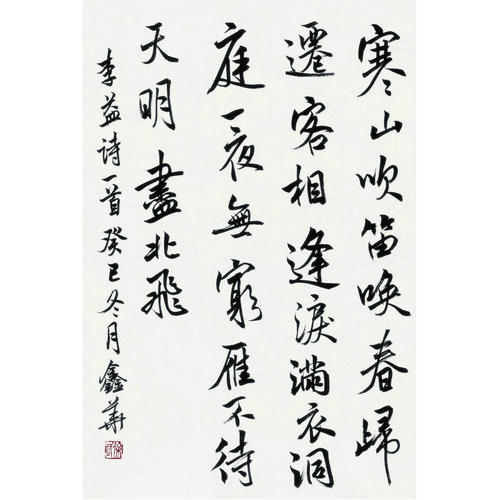 寒山吹笛唤春歸
遷客相逢淚滿衣洞
庭一夜無窮雁不待
天明盡北飛
李益诗一首癸巳冬月鑫華